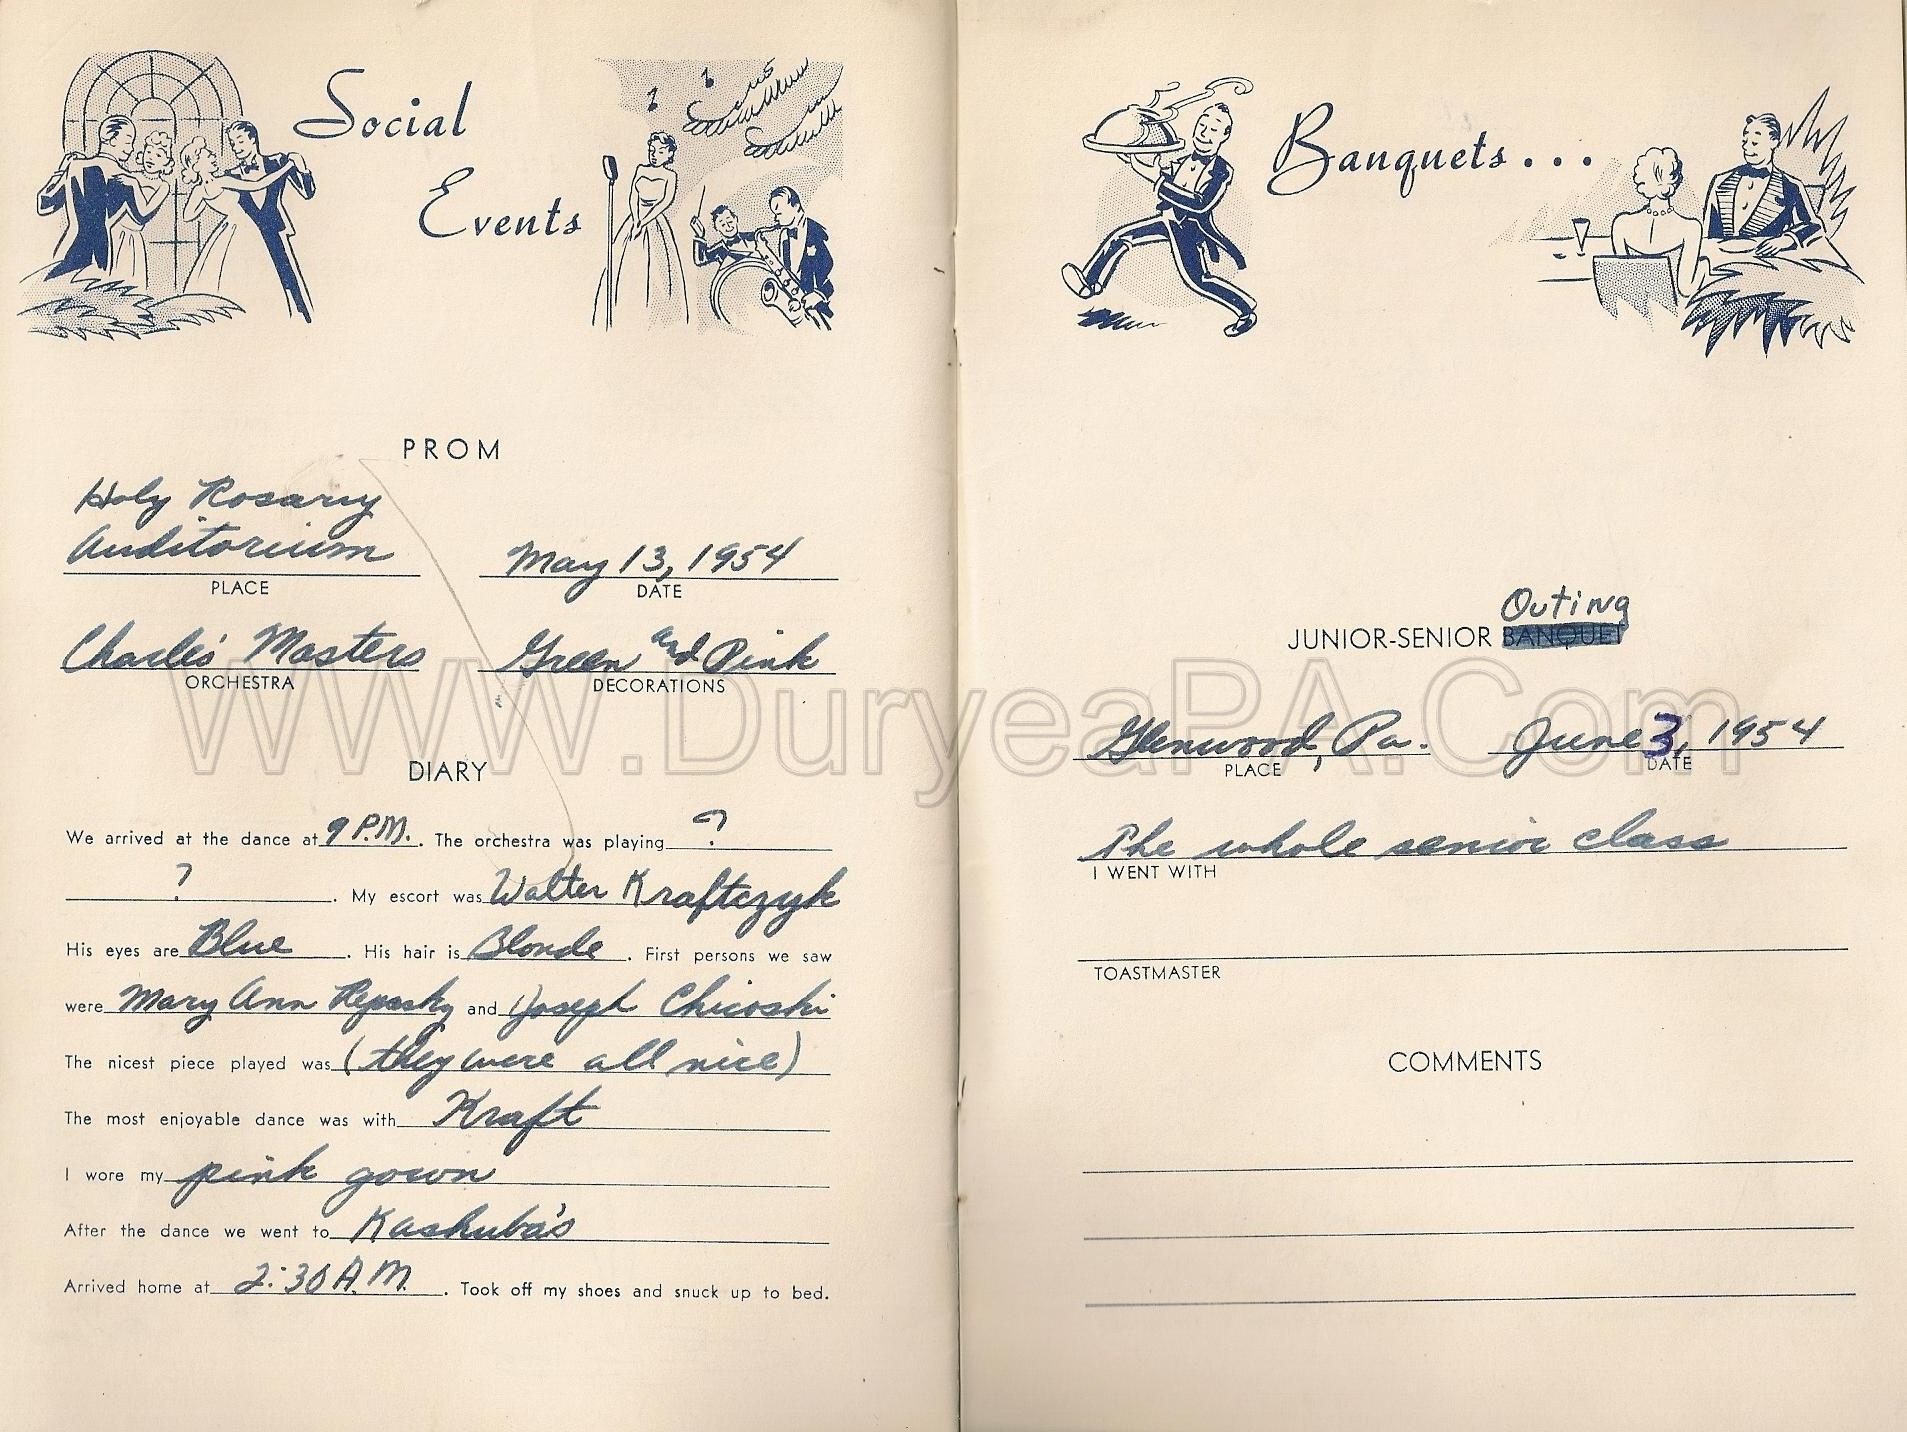 Social
Events
PROM
Holy Rosary
Auditorium
May 13, 1954
PLACE
DATE
Charles' Masters
Green and Pink
ORCHESTRA
DECORATIONS
DIARY
We arrived at the dance at 9 P.M. . The orchestra was playing ?
? . My escort was Walter Kraftczyk
His eyes are Blue . His hair is Blonde . First persons we saw
were Mary Ann and Joseph Chicoski
The nicest piece played was (they were all nice)
The most enjoyable dance was with Kraft
I wore my pink gown
After the dance we went to Kashuba's
Arrived home at 2:30 A.M. . Took off my shoes and snuck up to bed.
Banquets...
Outing
JUNIOR-SENIOR BANQUET
Glenwood, Pa.
June 3, 1954
PLACE
DATE
The whole senior class
I WENT WITH
TOASTMASTER
COMMENTS
WWW.DuryeaPA.Com